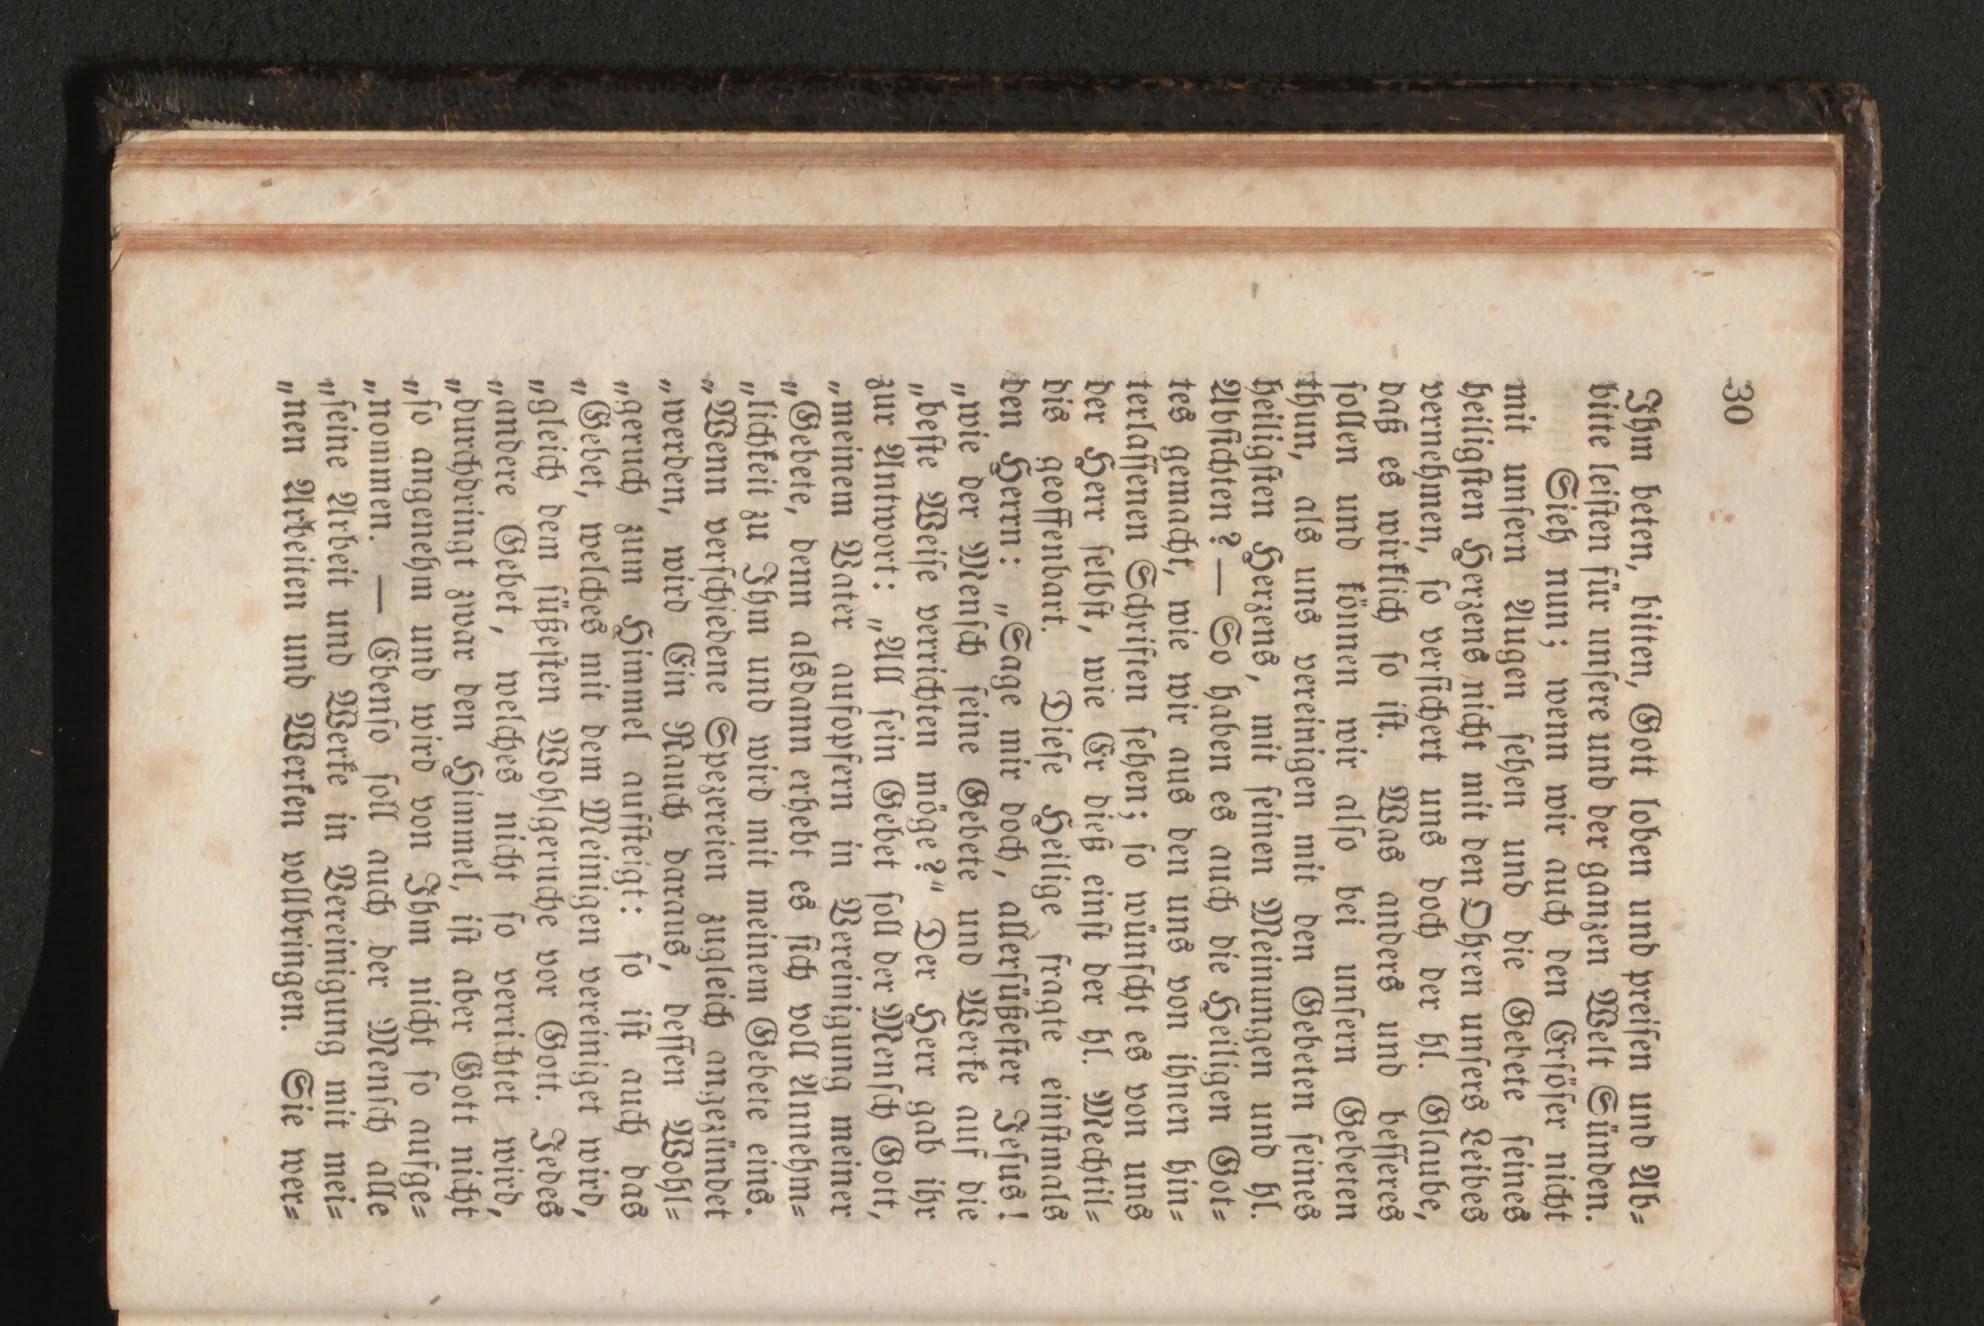 30
Ihm beten, bitten, Gott loben und preisen und Ab-
bitte leisten für unsere und der ganzen Welt Sünden.
Sieh nun; wenn wir auch den Erlöser nicht
mit unsern Augen sehen und die Gebete seines
heiligsten Herzens nicht mit den Ohren unsers Leibes
vernehmen, so versichert uns doch der hl. Glaube,
daß es wirklich so ist. Was anders und besseres
sollen und können wir also bei unsern Gebeten
thun, als uns vereinigen mit den Gebeten seines
heiligsten Herzens, mit seinen Meinungen und hl.
Absichten? — So haben es auch die Heiligen Got-
tes gemacht, wie wir aus den uns von ihnen hin-
terlassenen Schriften sehen; so wünscht es von uns
der Herr selbst, wie Er dieß einst der hl. Mechtil-
dis geoffenbart. Diese Heilige fragte einstmals
den Herrn: „Sage mir doch, allersüßester Jesus!
„wie der Mensch seine Gebete und Werke auf die
„beste Weise verrichten möge?" Der Herr gab ihr
zur Antwort: „All sein Gebet soll der Mensch Gott,
„meinem Vater aufopfern in Vereinigung meiner
„Gebete, denn alsdann erhebt es sich voll Annehm-
„lichkeit zu Ihm und wird mit meinem Gebete eins.
„Wenn verschiedene Spezereien zugleich angezündet
„werden, wird Ein Rauch daraus, dessen Wohl-
„geruch zum Himmel aufsteigt: so ist auch das
„Gebet, welches mit dem Meinigen vereiniget wird,
„gleich dem süßesten Wohlgeruche vor Gott. Jedes
„andere Gebet, welches nicht so verrichtet wird,
„durchdringt zwar den Himmel, ist aber Gott nicht
„so angenehm und wird von Ihm nicht so aufge-
„nommen. — Ebenso soll auch der Mensch alle
„seine Arbeit und Werke in Vereinigung mit mei-
„nen Arbeiten und Werken vollbringen. Sie wer-